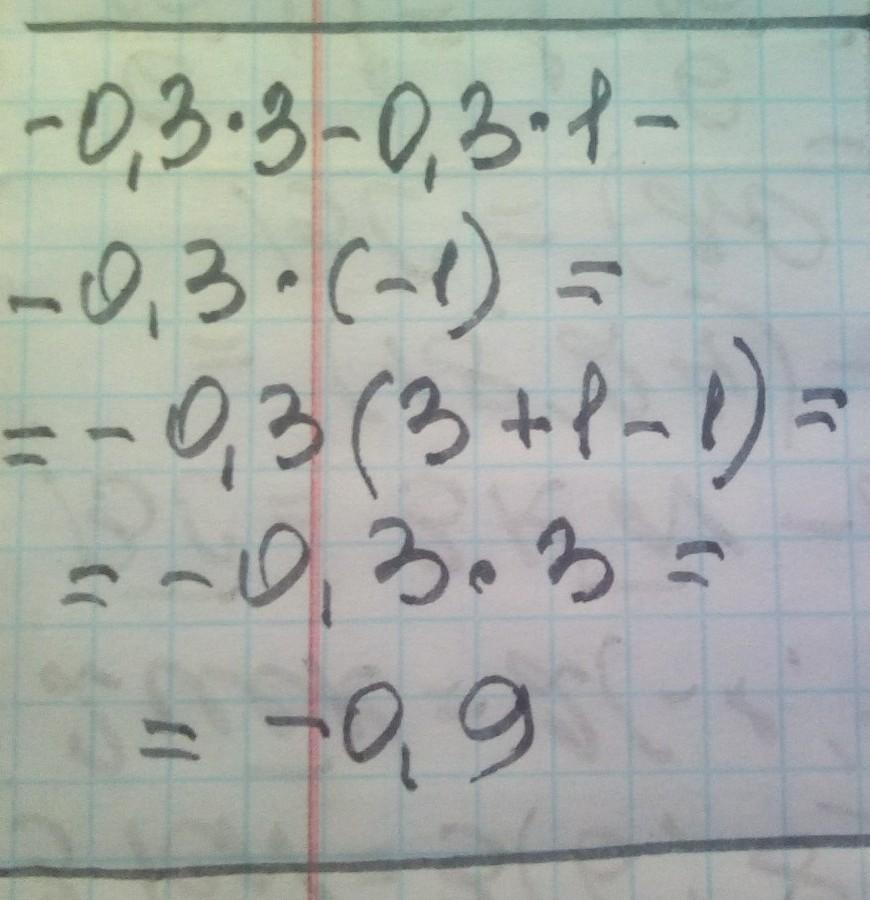 -0,3·3-0,3·1-
-0,3·(-1)=
=-0,3(3+1-1)=
=-0,3·3=
=-0,9